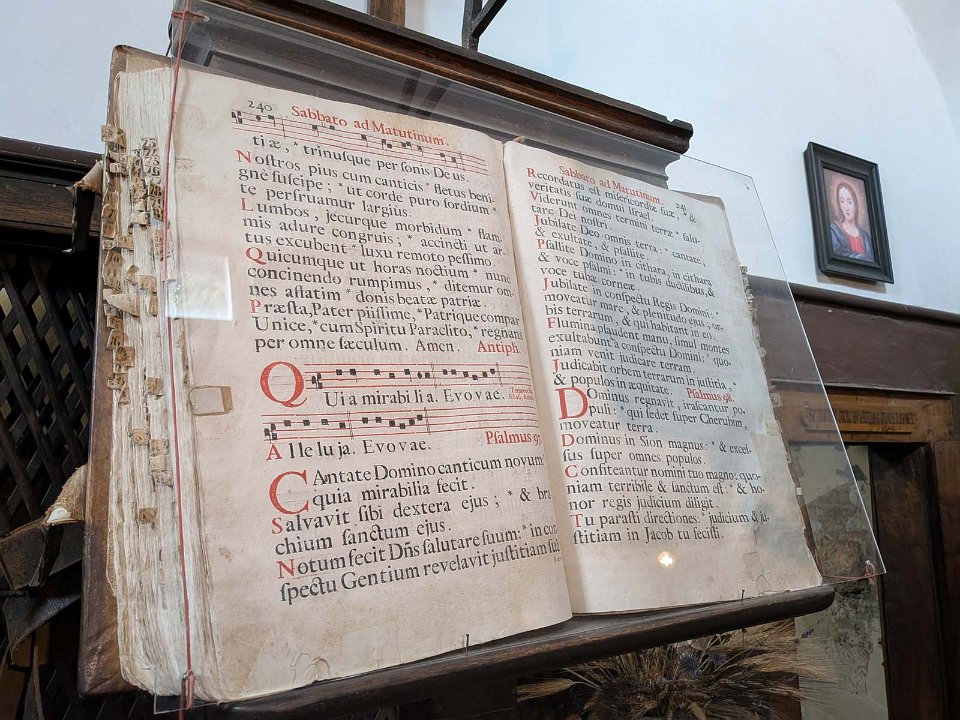 240
Sabbato ad Matutinum.
tiæ, * trinusque per sonis De us.
Nostros pius cum canticis * fletus beni-
gnè suscipe; * ut corde puro sordium *
te perfruamur largius.
Lumbos, jecurque morbidum * flam-
mis adure congruis; * accincti ut ar-
tus excubent * luxu remoto pessimo.
Quicumque ut horas noctium * nunc
concinendo rumpimus, * ditemur om-
nes affatim * donis beatæ patriæ.
Præsta, Pater piissime, * Patrique compar
Unice, * cum Spiritu Paraclito, * regnans
per omne sæculum. Amen. Antiph.
Qui a mirabi li a. Evovae.
Alle lu ja. Evovae. Psalmus 97.
CAntate Domino canticum novum
quia mirabilia fecit.
Salvavit sibi dextera ejus; * & bra
chium sanctum ejus.
Notum fecit Dñs salutare suum: * in con
spectu Gentium revelavit justitiam
Sabbato ad Matutinum. 241
Recordatus est misericordiæ suæ, * &
veritatis suæ domui Israel.
Viderunt omnes termini terræ * salu-
tare Dei nostri.
Jubilate Deo omnis terra: * cantate,
& exultate, & psallite.
Psallite Domino in cithara, in cithara
& voce psalmi: * in tubis ductilibus, &
voce tubæ corneæ.
Jubilate in conspectu Regis Domini: *
moveatur mare, & plenitudo ejus; or-
bis terrarum, & qui habitant in eo.
Flumina plaudent manu, simul montes
exultabunt a conspectu Domini: * quo-
niam venit judicare terram.
Judicabit orbem terrarum in justitia, *
& populos in æquitate. Psalmus 98.
DOminus regnavit, irascantur po-
puli: * qui sedet super Cherubim,
moveatur terra.
Dominus in Sion magnus: * & excel-
sus super omnes populos.
Confiteantur nomini tuo magno: quo-
niam terribile & sanctum est: * & ho-
nor regis judicium diligit.
Tu parasti directiones: * judicium & ju-
stitiam in Jacob tu fecisti.